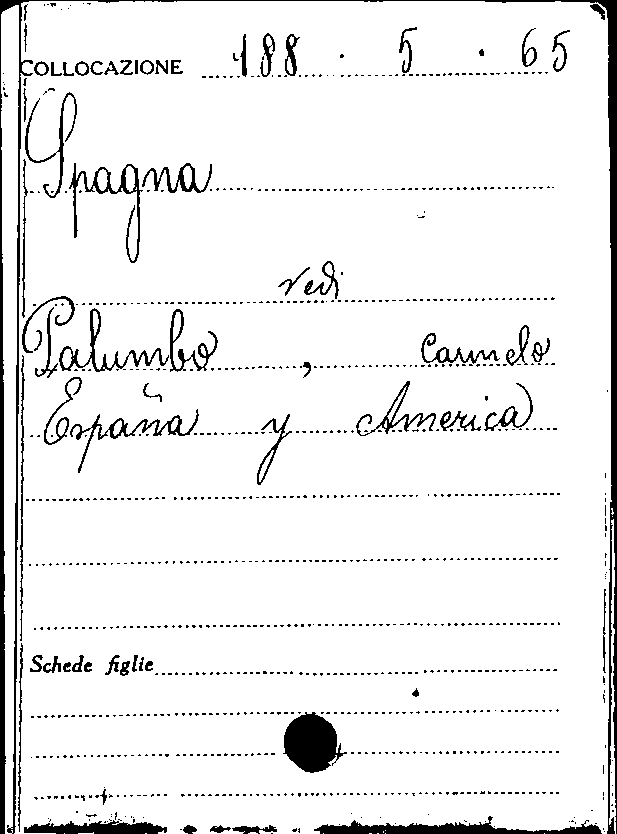 COLLOCAZIONE 188 . 5 . 65
Spagna
vedi
Palumbo , Carmelo
España y America
Schede figlie